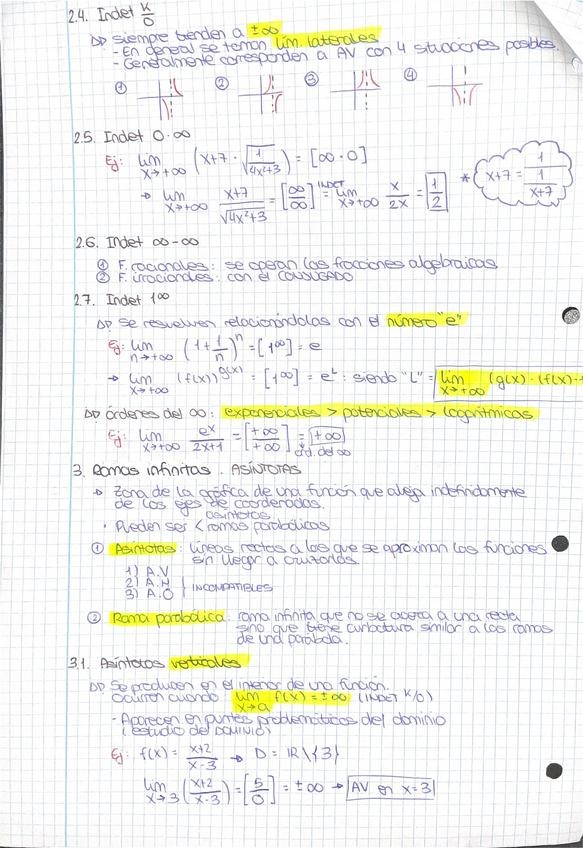 2.4. Indet K/0
⇨ siempre tienden a ±∞
- En general se toman lím. laterales
- Generalmente corresponden a AV con 4 situaciones posibles.
① ② ③ ④
2.5. Indet 0·∞
Ej: lim x→+∞ (x+7 · √(1/(4x²+3))) = [∞·0]
→ lim x→+∞ (x+7)/√(4x²+3) = [∞/∞] INDET = lim x→+∞ x/2x = 1/2
* x+7 = 1/(1/(x+7))
2.6. Indet ∞-∞
① F. racionales: se operan las fracciones algebraicas
② F. irracionales: con el CONJUGADO
2.7. Indet 1^∞
⇨ Se resuelven relacionándolas con el número "e"
Ej: lim n→+∞ (1+1/n)^n = [1^∞] = e
→ lim x→+∞ (f(x))^g(x) = [1^∞] = e^L : siendo "L" = lim x→+∞ (g(x)·(f(x)-1
⇨ órdenes del ∞: exponenciales > potenciales > logarítmicas
Ej: lim x→+∞ e^x/(2x+1) = [+∞/+∞] = +∞
ord. del ∞
3. Ramas infinitas. ASÍNTOTAS
→ Zona de la gráfica de una función que aleja indefinidamente
de los ejes de coordenadas.
asíntotas
· Pueden ser < ramas parabólicas
① Asíntotas: líneas rectas a las que se aproximan las funciones
sin llegar a cruzarlas.
1) A.V
2) A.H
3) A.O | INCOMPATIBLES
② Rama parabólica: rama infinita que no se acerca a una recta
sino que tiene curvatura similar a las ramas
de una parábola.
3.1. Asíntotas verticales
⇨ Se producen en el interior de una función.
Ocurren cuando: lim x→a f(x) = ±∞ (INDET K/0)
- Aparecen en puntos problemáticos del dominio
(estudio del DOMINIO)
Ej: f(x) = (x+2)/(x-3) → D = IR\{3}
lim x→3 ((x+2)/(x-3)) = [5/0] = ±∞ → AV en x=3